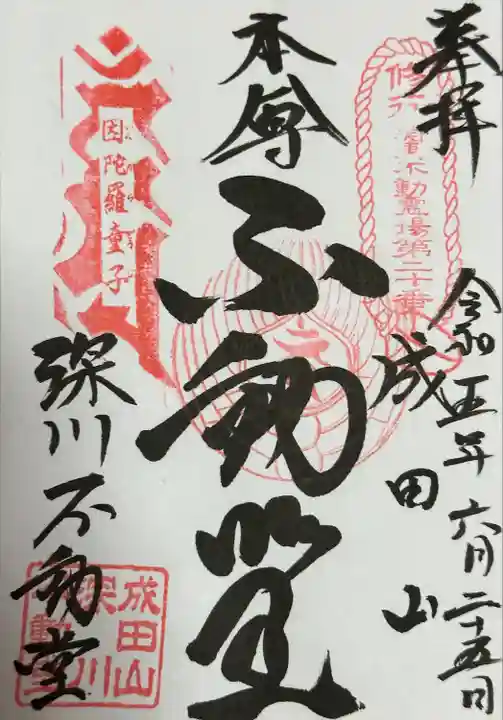 奉拝
令和五年六月二十五日
成田山
本尊
不動尊
深川不動堂
因陀羅童子
不動霊場第二十番
成田山
深川
不動堂